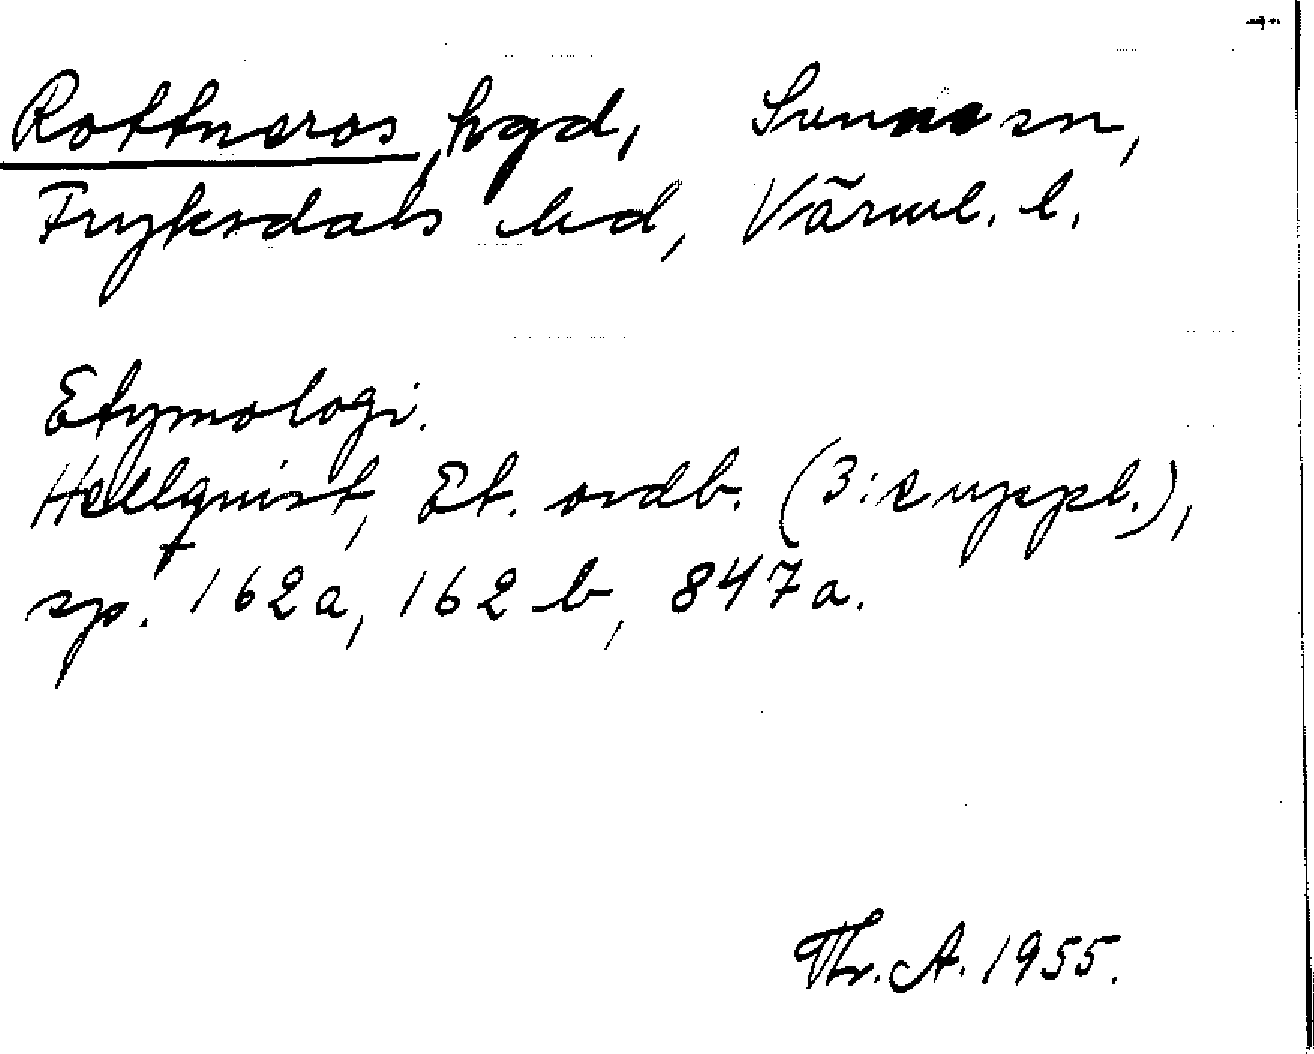 Rottneros, hgd, Sunne sn,
Fryksdals hd, Värml. l.
Etymologi.
Hellquist, Et. ordb. (3:e uppl.),
sp. 162a, 162 b, 847a.
Thr. A. 1955.